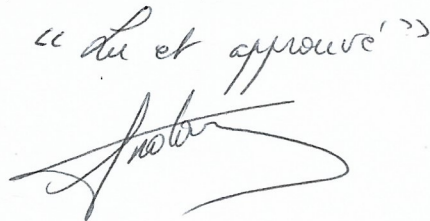 “ Lu et approuvé ”